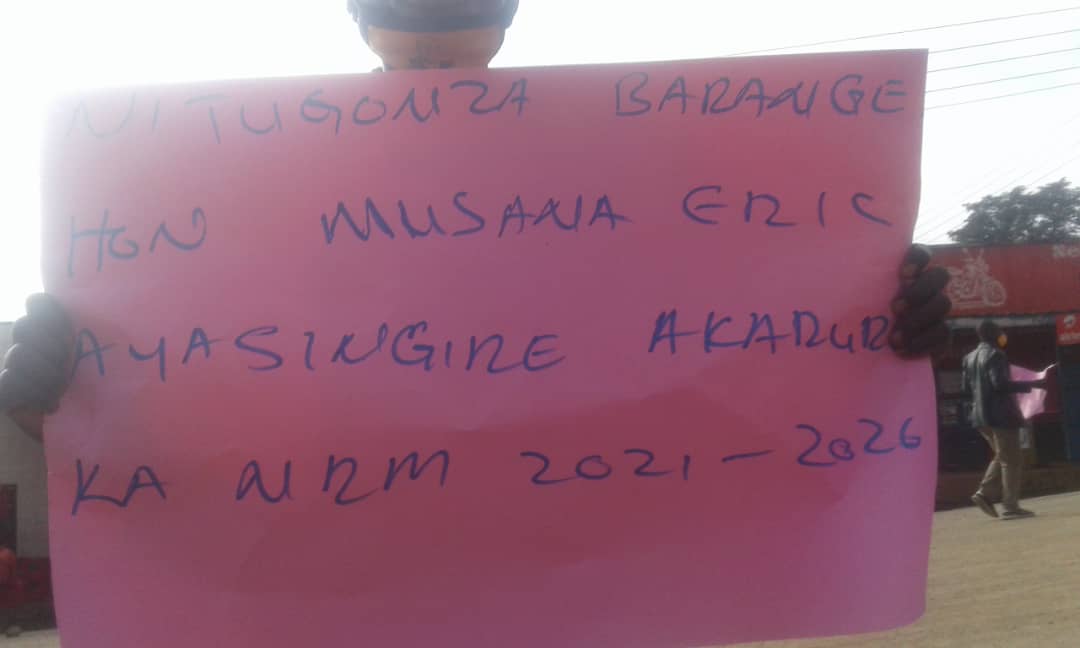 NITUGONZA BARANGE
HON MUSANA ERIC
AYASINGIRE AKARURU
KA NRM 2021-2026